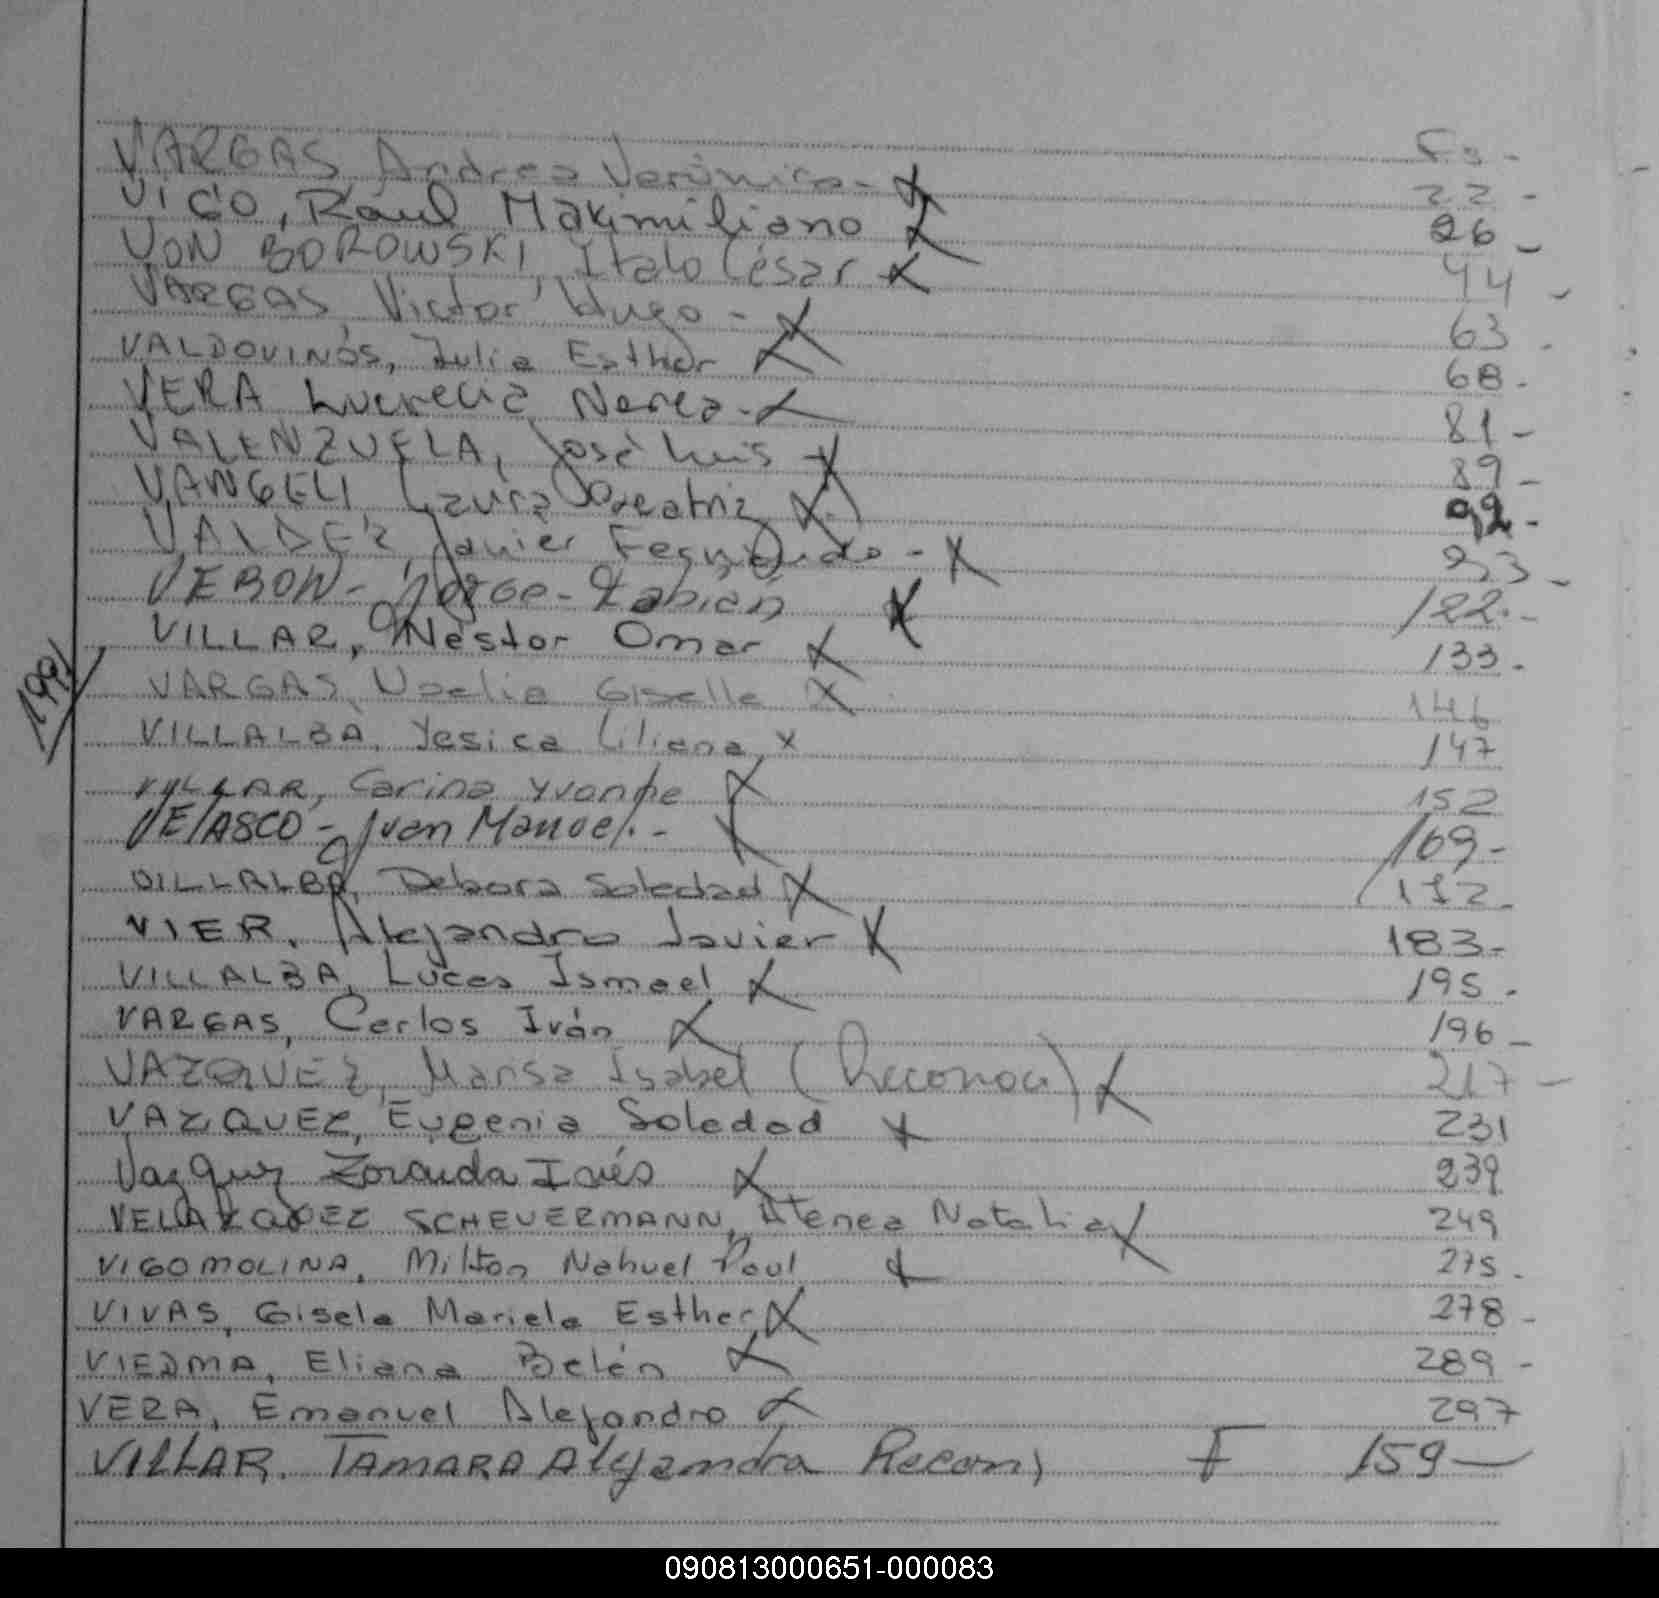 Fs-
VARGAS, Andrea Verónica - X 22 -
VICO, Raul Maximiliano X 26 -
VON BOROWSKI, Italo César X 44 -
VARGAS, Victor Hugo - X 63 -
VALDOVINOS, Julia Esther X 68 -
VERA Lucrecia Nerea - X 81 -
VALENZUELA, José Luis X 89 -
VANGELI, Laura Beatriz X 92 -
VALDEZ, Javier Fernando - X 93 -
VERON - Jorge - Fabián X 122 -
VILLAR, Néstor Omar X 133 -
1991
VARGAS, Noelia Giselle X 146
VILLALBA, Yesica Liliana X 147
VILLAR, Carina Yvonne X 152
VELASCO - Juan Manuel. - X 169 -
VILLALBA, Debora Soledad X 172 -
VIER, Alejandro Javier X 183 -
VILLALBA, Lucas Ismael X 195 -
VARGAS, Carlos Iván X 196 -
VAZQUEZ, Marisa Isabel (Reconoc) X 217 -
VAZQUEZ, Eugenia Soledad X 231
Vazquez Zoraida Inés X 239
VELAZQUEZ SCHEUERMANN, Atenea Natalia X 249
VIGOMOLINA, Milton Nahuel Paul X 275 -
VIVAS, Gisela Mariela Esther X 278 -
VIEDMA, Eliana Belén X 289 -
VERA, Emanuel Alejandro X 297
VILLAR. TAMARA Alejandra Recon) F 159 -
090813000651-000083